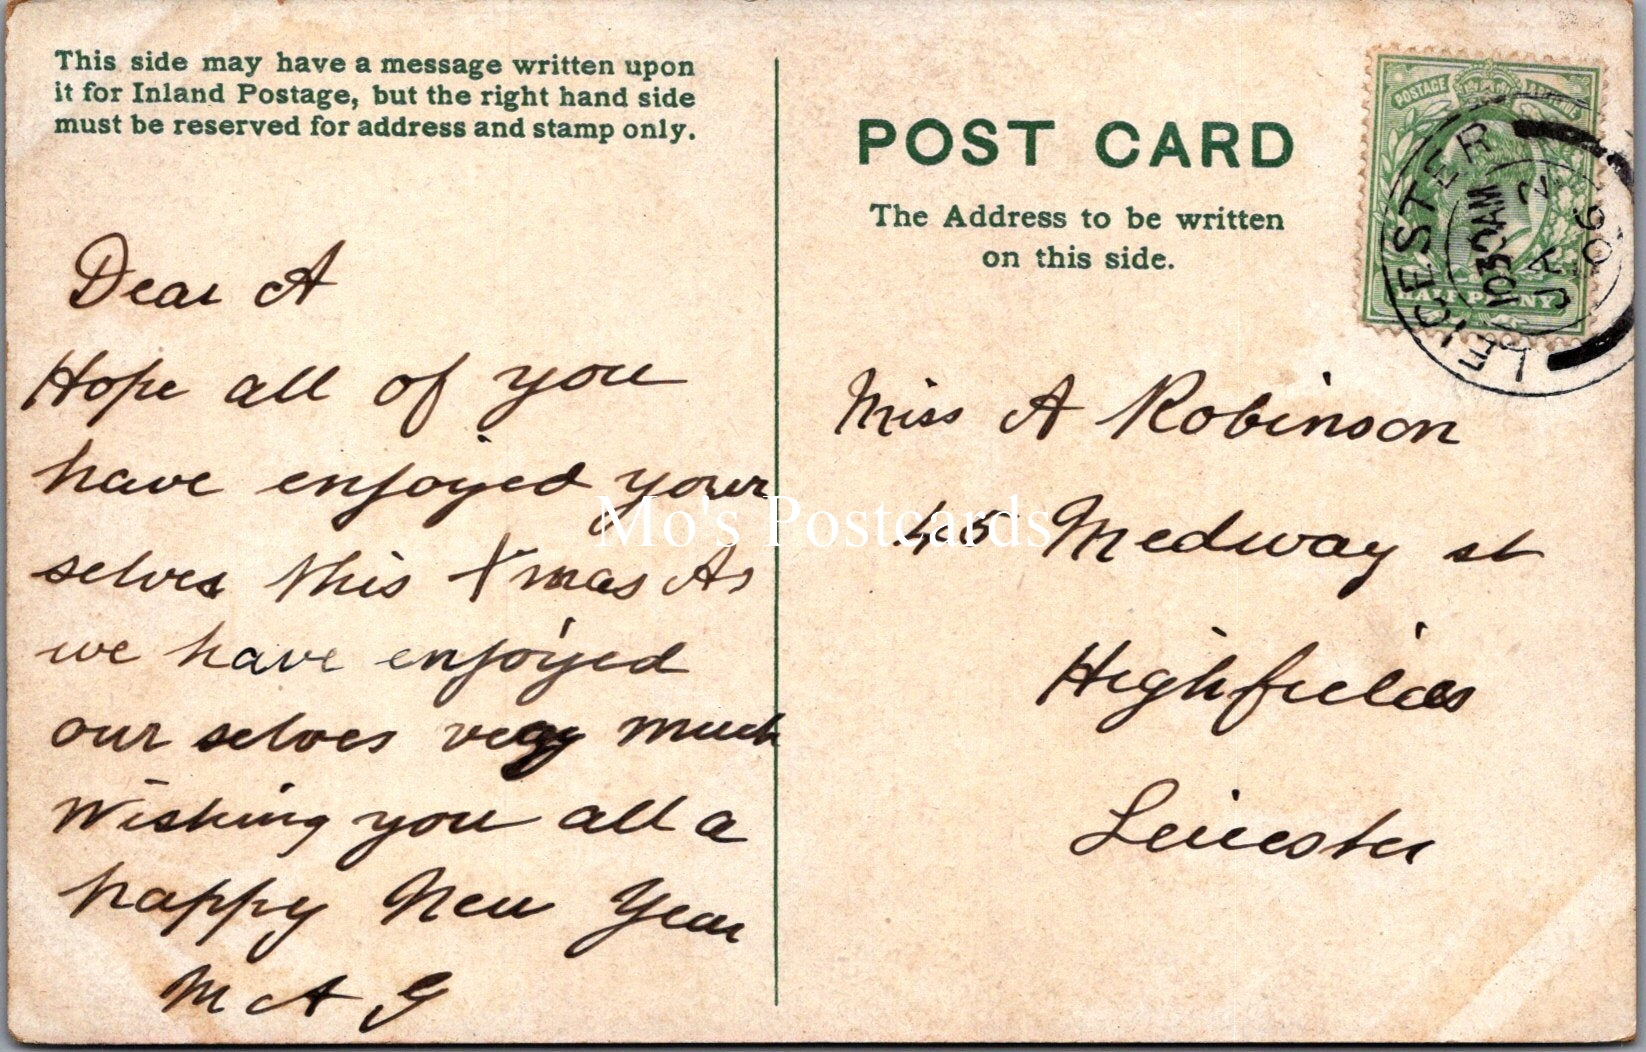 This side may have a message written upon
it for Inland Postage, but the right hand side
must be reserved for address and stamp only.
Dear A
Hope all of you
have enjoyed your
selves this Xmas As
we have enjoyed
our selves very much
Wishing you all a
happy New Year
M A G
POST CARD
The Address to be written
on this side.
POSTAGE
HALF PENNY
LEICESTER
1030AM
JA 2
06
Miss A Robinson
45 Medway st
Highfields
Leicester
Mo's Postcards